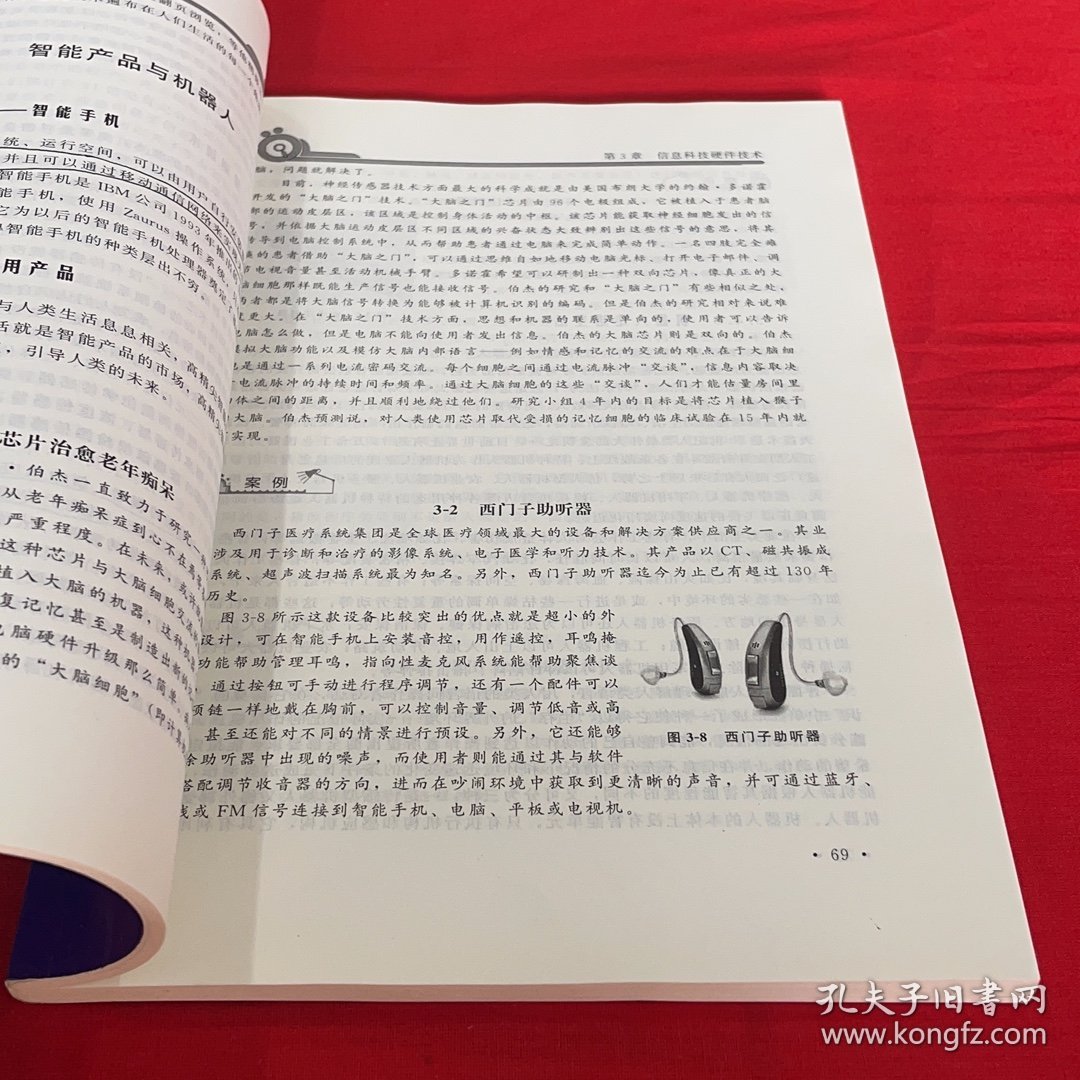 翻页浏览，
遍布在人们生活的每一个
智能产品与机器人
智能手机
统、运行空间，可以由用户自行
并且可以通过移动通信网络来实现
智能手机是 IBM 公司 1993 年推出
能手机，使用 Zaurus 操作系统，
它为以后的智能手机处理器奠定了
智能手机的种类层出不穷。
用产品
与人类生活息息相关，高精尖
活就是智能产品的市场，高精尖
，引导人类的未来。
芯片治愈老年痴呆
·伯杰一直致力于研究一种
从老年痴呆症到心不在焉等
严重程度。在未来，或许
这种芯片与大脑细胞交流
植入大脑的机器，这种机器
复记忆甚至是制造出新的
电脑硬件升级那么简单，
的“大脑细胞”（即计算
第 3 章 信息科技硬件技术
脑，问题就解决了。
目前，神经传感器技术方面最大的科学成就是由美国布朗大学的约翰·多诺霍
开发的“大脑之门”技术。“大脑之门”芯片由 96 个电极组成，它被植入于患者脑
部的运动皮层区，该区域是控制身体活动的中枢。该芯片能获取神经细胞发出的信
号，并依据大脑运动皮层区不同区域的兴奋状态大致辨别出这些信号的意思，将其
传导到电脑控制系统中，从而帮助患者通过电脑来完成简单动作。一名四肢完全瘫
痪的患者借助“大脑之门”，可以通过思维自如地移动电脑光标、打开电子邮件、调
节电视音量甚至活动机械手臂。多诺霍希望可以研制出一种双向芯片，像真正的大
脑细胞那样既能生产信号也能接收信号。伯杰的研究和“大脑之门”有些相似之处，
两者都是将大脑信号转换为能够被计算机识别的编码。但是伯杰的研究相对来说难
度更大。在“大脑之门”技术方面，思想和机器的联系是单向的，使用者可以告诉
电脑怎么做，但是电脑不能向使用者发出信息。伯杰的大脑芯片则是双向的。伯杰
模拟大脑功能以及模仿大脑内部语言——例如情感和记忆的交流的难点在于大脑细
胞是通过一系列电流密码交流。每个细胞之间通过电流脉冲“交谈”，信息内容取决
于电流脉冲的持续时间和频率。通过大脑细胞的这些“交谈”，人们才能估量房间里
物体之间的距离，并且顺利地绕过他们。研究小组 4 年内的目标是将芯片植入猴子
大脑。伯杰预测说，对人类使用芯片取代受损的记忆细胞的临床试验在 15 年内就
实现。
案例
3-2 西门子助听器
西门子医疗系统集团是全球医疗领域最大的设备和解决方案供应商之一。其业
涉及用于诊断和治疗的影像系统、电子医学和听力技术。其产品以 CT、磁共振成
系统、超声波扫描系统最为知名。另外，西门子助听器迄今为止已有超过 130 年
历史。
图 3-8 所示这款设备比较突出的优点就是超小的外
设计，可在智能手机上安装音控，用作遥控，耳鸣掩
功能帮助管理耳鸣，指向性麦克风系统能帮助聚焦谈
，通过按钮可手动进行程序调节，还有一个配件可以
项链一样地戴在胸前，可以控制音量、调节低音或高
，甚至还能对不同的情景进行预设。另外，它还能够
除助听器中出现的噪声，而使用者则能通过其与软件
搭配调节收音器的方向，进而在吵闹环境中获取到更清晰的声音，并可通过蓝牙、
线或 FM 信号连接到智能手机、电脑、平板或电视机。
图 3-8 西门子助听器
· 69 ·
孔夫子旧书网
www.kongfz.com